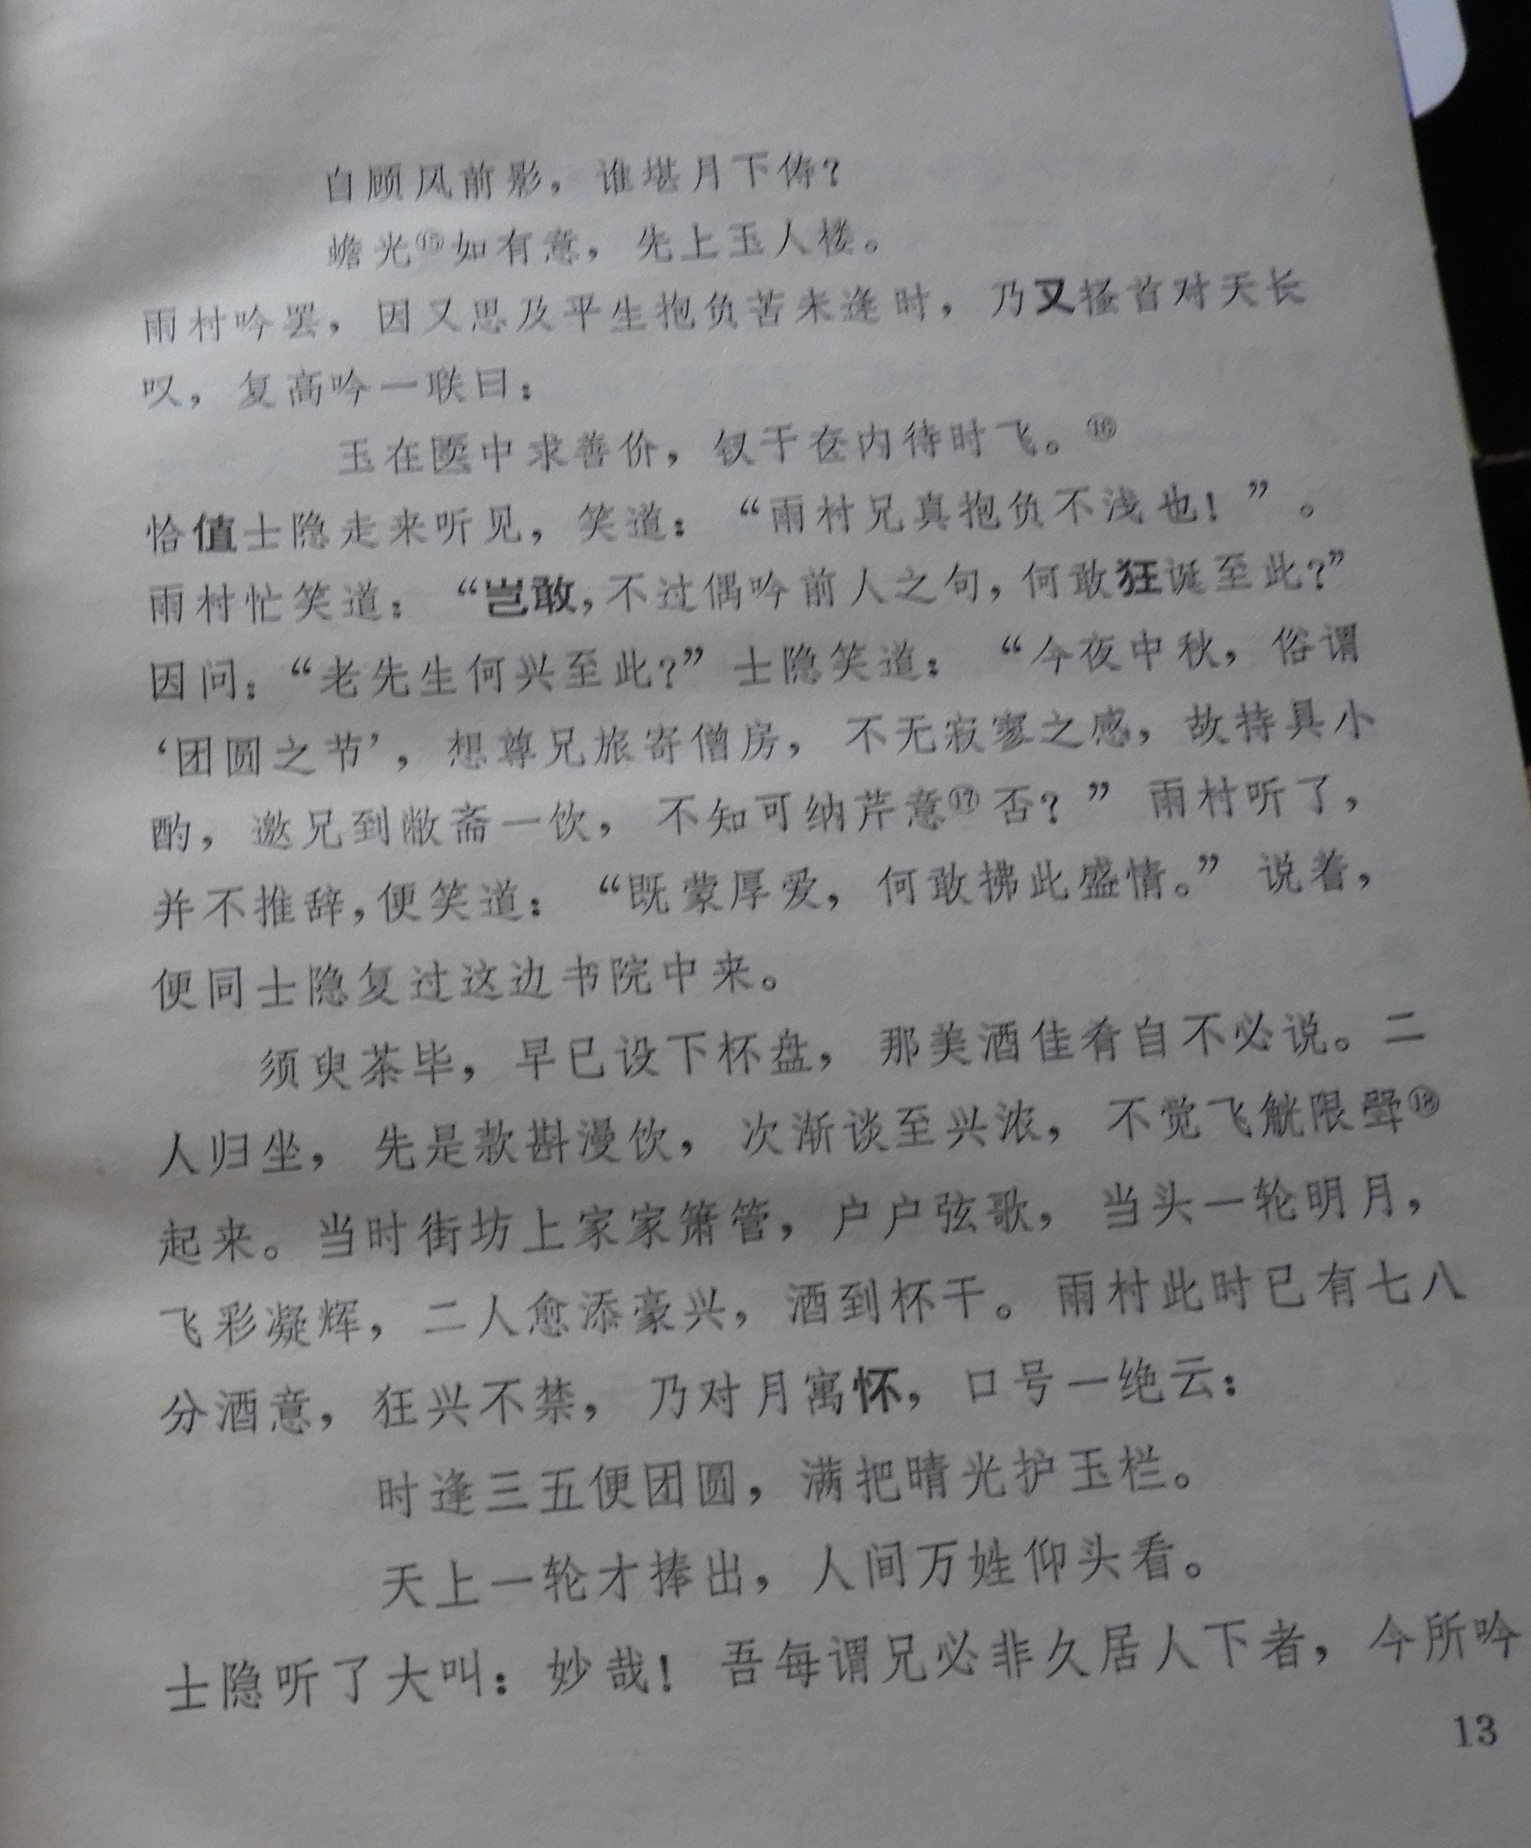 自顾风前影，谁堪月下俦？
蟾光⑮如有意，先上玉人楼。
雨村吟罢，因又思及平生抱负苦未逢时，乃又搔首对天长
叹，复高吟一联曰：
玉在匮中求善价，钗于奁内待时飞。⑯
恰值士隐走来听见，笑道：“雨村兄真抱负不浅也！”。
雨村忙笑道：“岂敢，不过偶吟前人之句，何敢狂诞至此？”
因问：“老先生何兴至此？”士隐笑道：“今夜中秋，俗谓
‘团圆之节’，想尊兄旅寄僧房，不无寂寥之感，故持具小
酌，邀兄到敝斋一饮，不知可纳芹意⑰否？”雨村听了，
并不推辞，便笑道：“既蒙厚爱，何敢拂此盛情。”说着，
便同士隐复过这边书院中来。
须臾茶毕，早已设下杯盘，那美酒佳肴自不必说。二
人归坐，先是款斟漫饮，次渐谈至兴浓，不觉飞觥限斝⑱
起来。当时街坊上家家箫管，户户弦歌，当头一轮明月，
飞彩凝辉，二人愈添豪兴，酒到杯干。雨村此时已有七八
分酒意，狂兴不禁，乃对月寓怀，口号一绝云：
时逢三五便团圆，满把晴光护玉栏。
天上一轮才捧出，人间万姓仰头看。
士隐听了大叫：妙哉！吾每谓兄必非久居人下者，今所吟
13